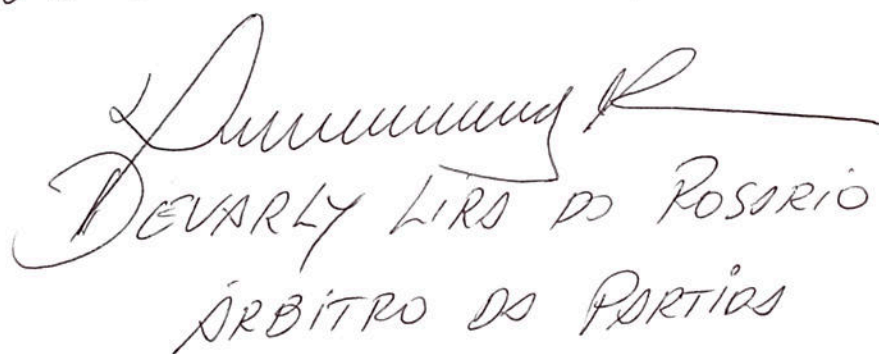 DEVARLY LIRA DO ROSARIO
ÁRBITRO DA PARTIDA